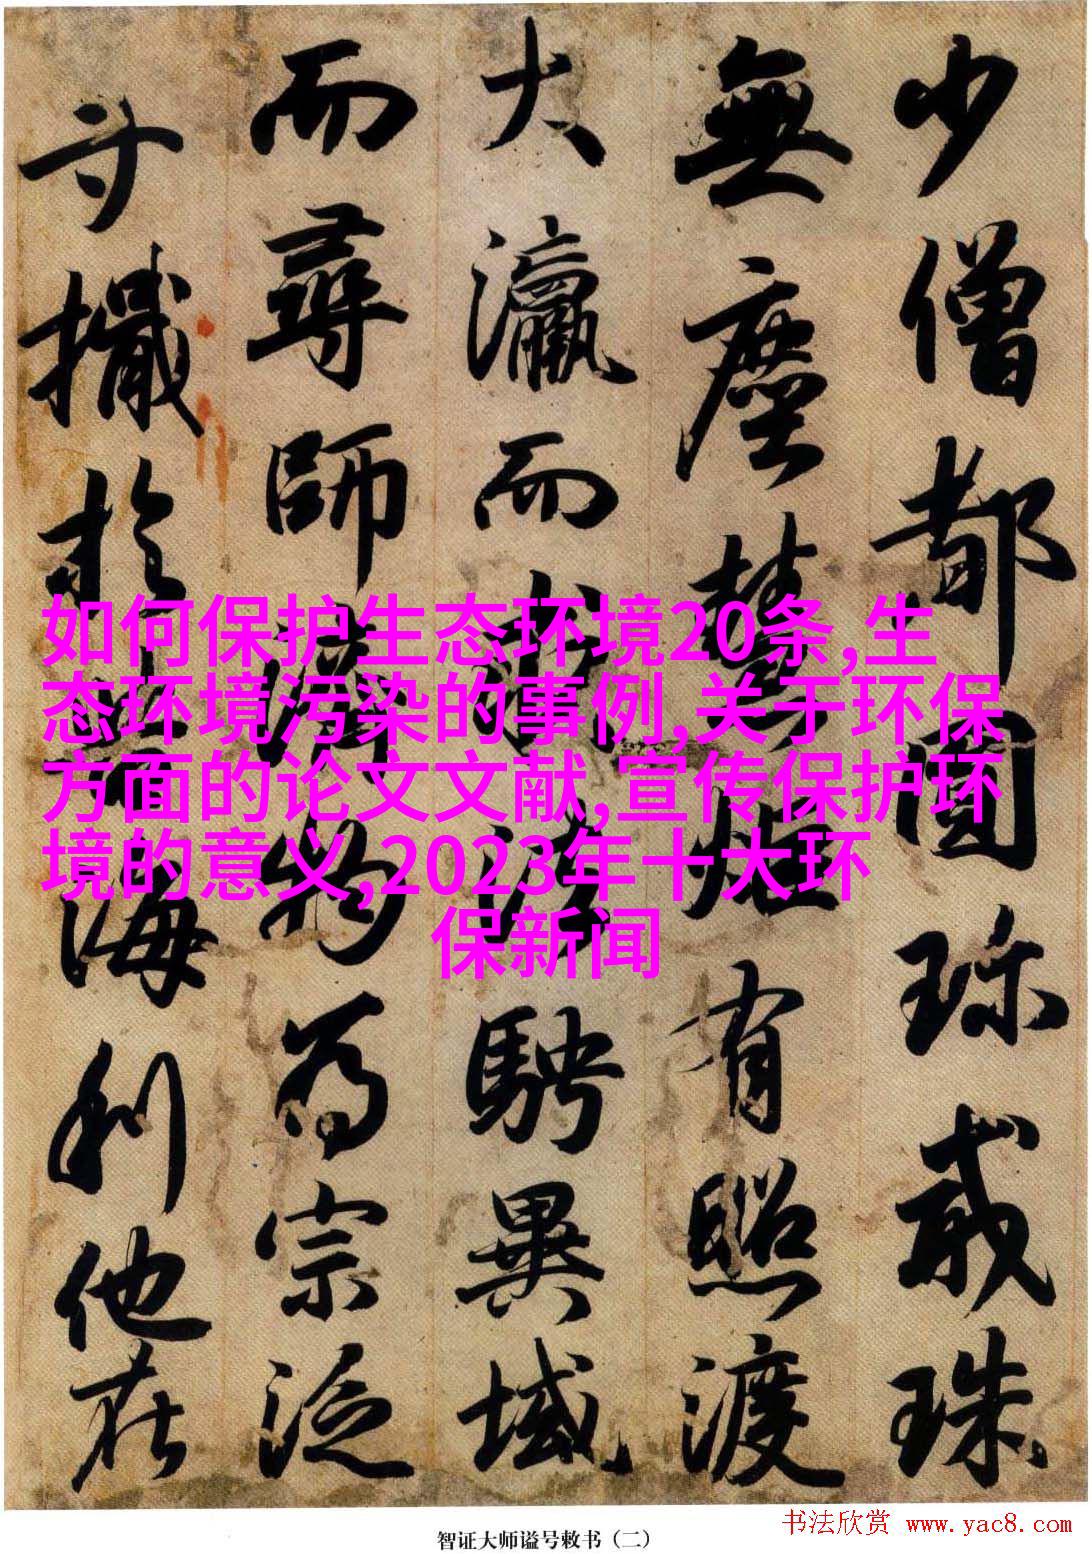 少僧都圓珍戒珠
無塵慧炬有照渡
大瀛而求法騁異域
而尋師濟物為宗泛
舟檝於海利他在
如何保护生态环境20条,生
态环境污染的事例,关于环保
方面的论文文献,宣传保护环
境的意义,2023年十大环
保新闻
书法欣赏 www.yac8.com
智证大师谥号敕书（二）